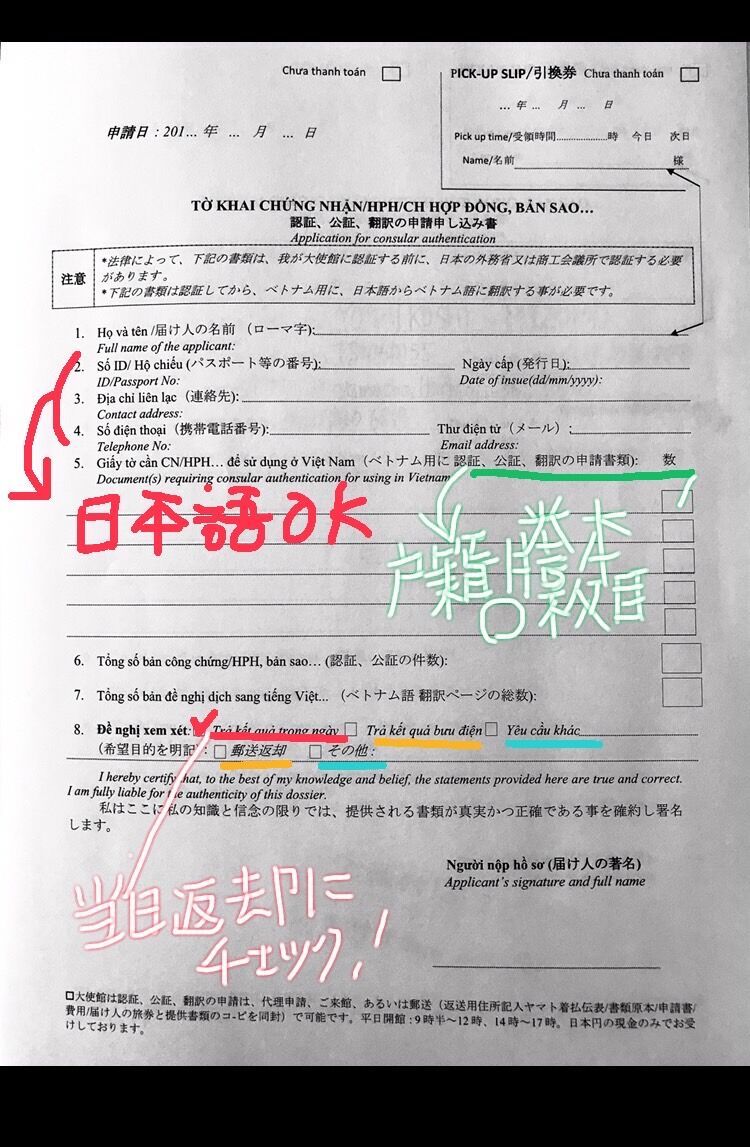 Chưa thanh toán
PICK-UP SLIP/引換券 Chưa thanh toán
... 年 ... 月 ... 日
申請日：201... 年 ... 月 ... 日
Pick up time/受領時間....................時 今日 次日
Name/名前 様
TỜ KHAI CHỨNG NHẬN/HPH/CH HỢP ĐỒNG, BẢN SAO…
認証、公証、翻訳の申請申し込み書
Application for consular authentication
注意
*法律によって、下記の書類は、我が大使館に認証する前に、日本の外務省又は商工会議所で認証する必要
があります。
*下記の書類は認証してから、ベトナム用に、日本語からベトナム語に翻訳する事が必要です。
1. Họ và tên /届け人の名前 （ローマ字）:
Full name of the applicant:
2. Số ID/ Hộ chiếu (パスポート等の番号): Ngày cấp (発行日):
ID/Passport No: Date of insue(dd/mm/yyyy):
3. Địa chỉ liên lạc（連絡先）:
Contact address:
4. Số điện thoại（携帯電話番号）: Thư điện tử（メール）:
Telephone No: Email address:
5. Giấy tờ cần CN/HPH… để sử dụng ở Việt Nam（ベトナム用に 認証、公証、翻訳の申請書類）: 数
Document(s) requiring consular authentication for using in Vietnam
日本語OK
戸籍謄本
〇枚目
6. Tổng số bản công chứng/HPH, bản sao… (認証、公証の件数):
7. Tổng số bản đề nghị dịch sang tiếng Việt... （ベトナム語 翻訳ページの総数):
8. Đề nghị xem xét: Trả kết quả trong ngày Trả kết quả bưu điện Yêu cầu khác
(希望目的を明記): 郵送返却 その他：
I hereby certify that, to the best of my knowledge and belief, the statements provided here are true and correct.
I am fully liable for the authenticity of this dossier.
私はここに私の知識と信念の限りでは、提供される書類が真実かつ正確である事を確約し署名
します。
Người nộp hồ sơ (届け人の著名)
Applicant's signature and full name
当日返却に
チェック！
大使館は認証、公証、翻訳の申請は、代理申請、ご来館、あるいは郵送（返送用住所記入ヤマト着払伝表/書類原本/申請書/
費用/届け人の旅券と提供書類のコ-ピを同封）で可能です。平日開館：9時半～12時、14時～17時。日本円の現金のみでお受
けしております。